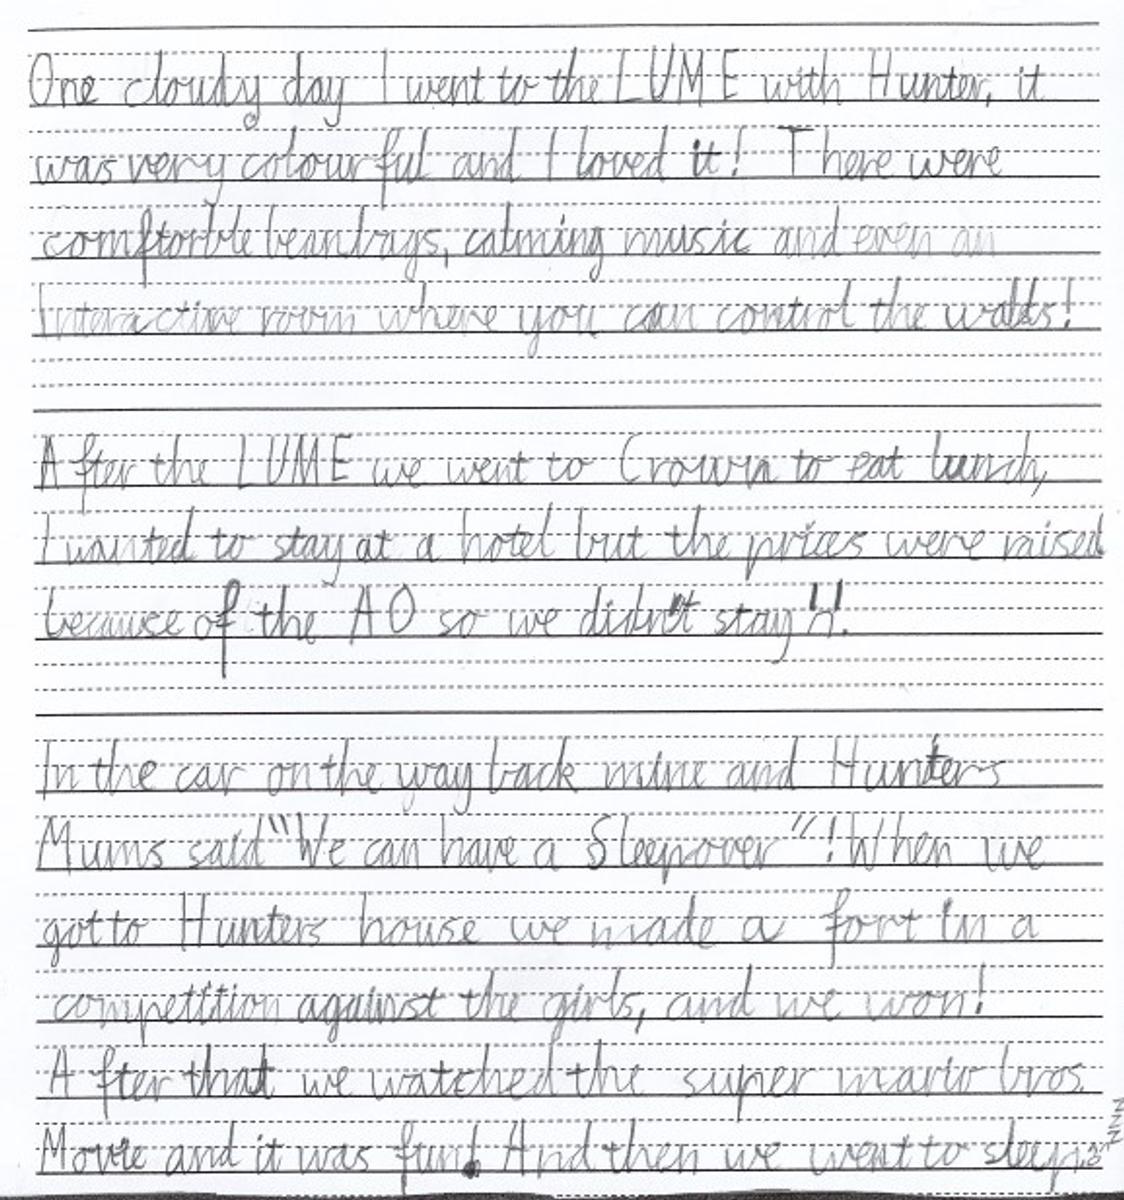 One cloudy day I went to the LUME with Hunter, it
was very colourful and I loved it! There were
comftorble beanbags, calming music and even an
Interactive room where you can control the walls!
After the LUME we went to Crown to eat lunch,
I wanted to stay at a hotel but the prices were raised
because of the AO so we didn't stay
In the car on the way back mine and Hunters
Mums said "We can have a Sleepover"! When we
got to Hunters house we made a fort in a
competition against the girls, and we won!
After that we watched the super mario bros.
Movie and it was fun! And then we went to sleep
zzz